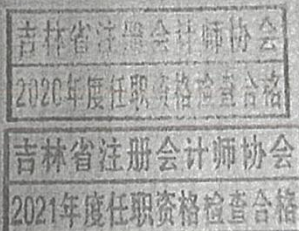 吉林省注册会计师协会
2020年度任职资格检查合格
吉林省注册会计师协会
2021年度任职资格检查合格